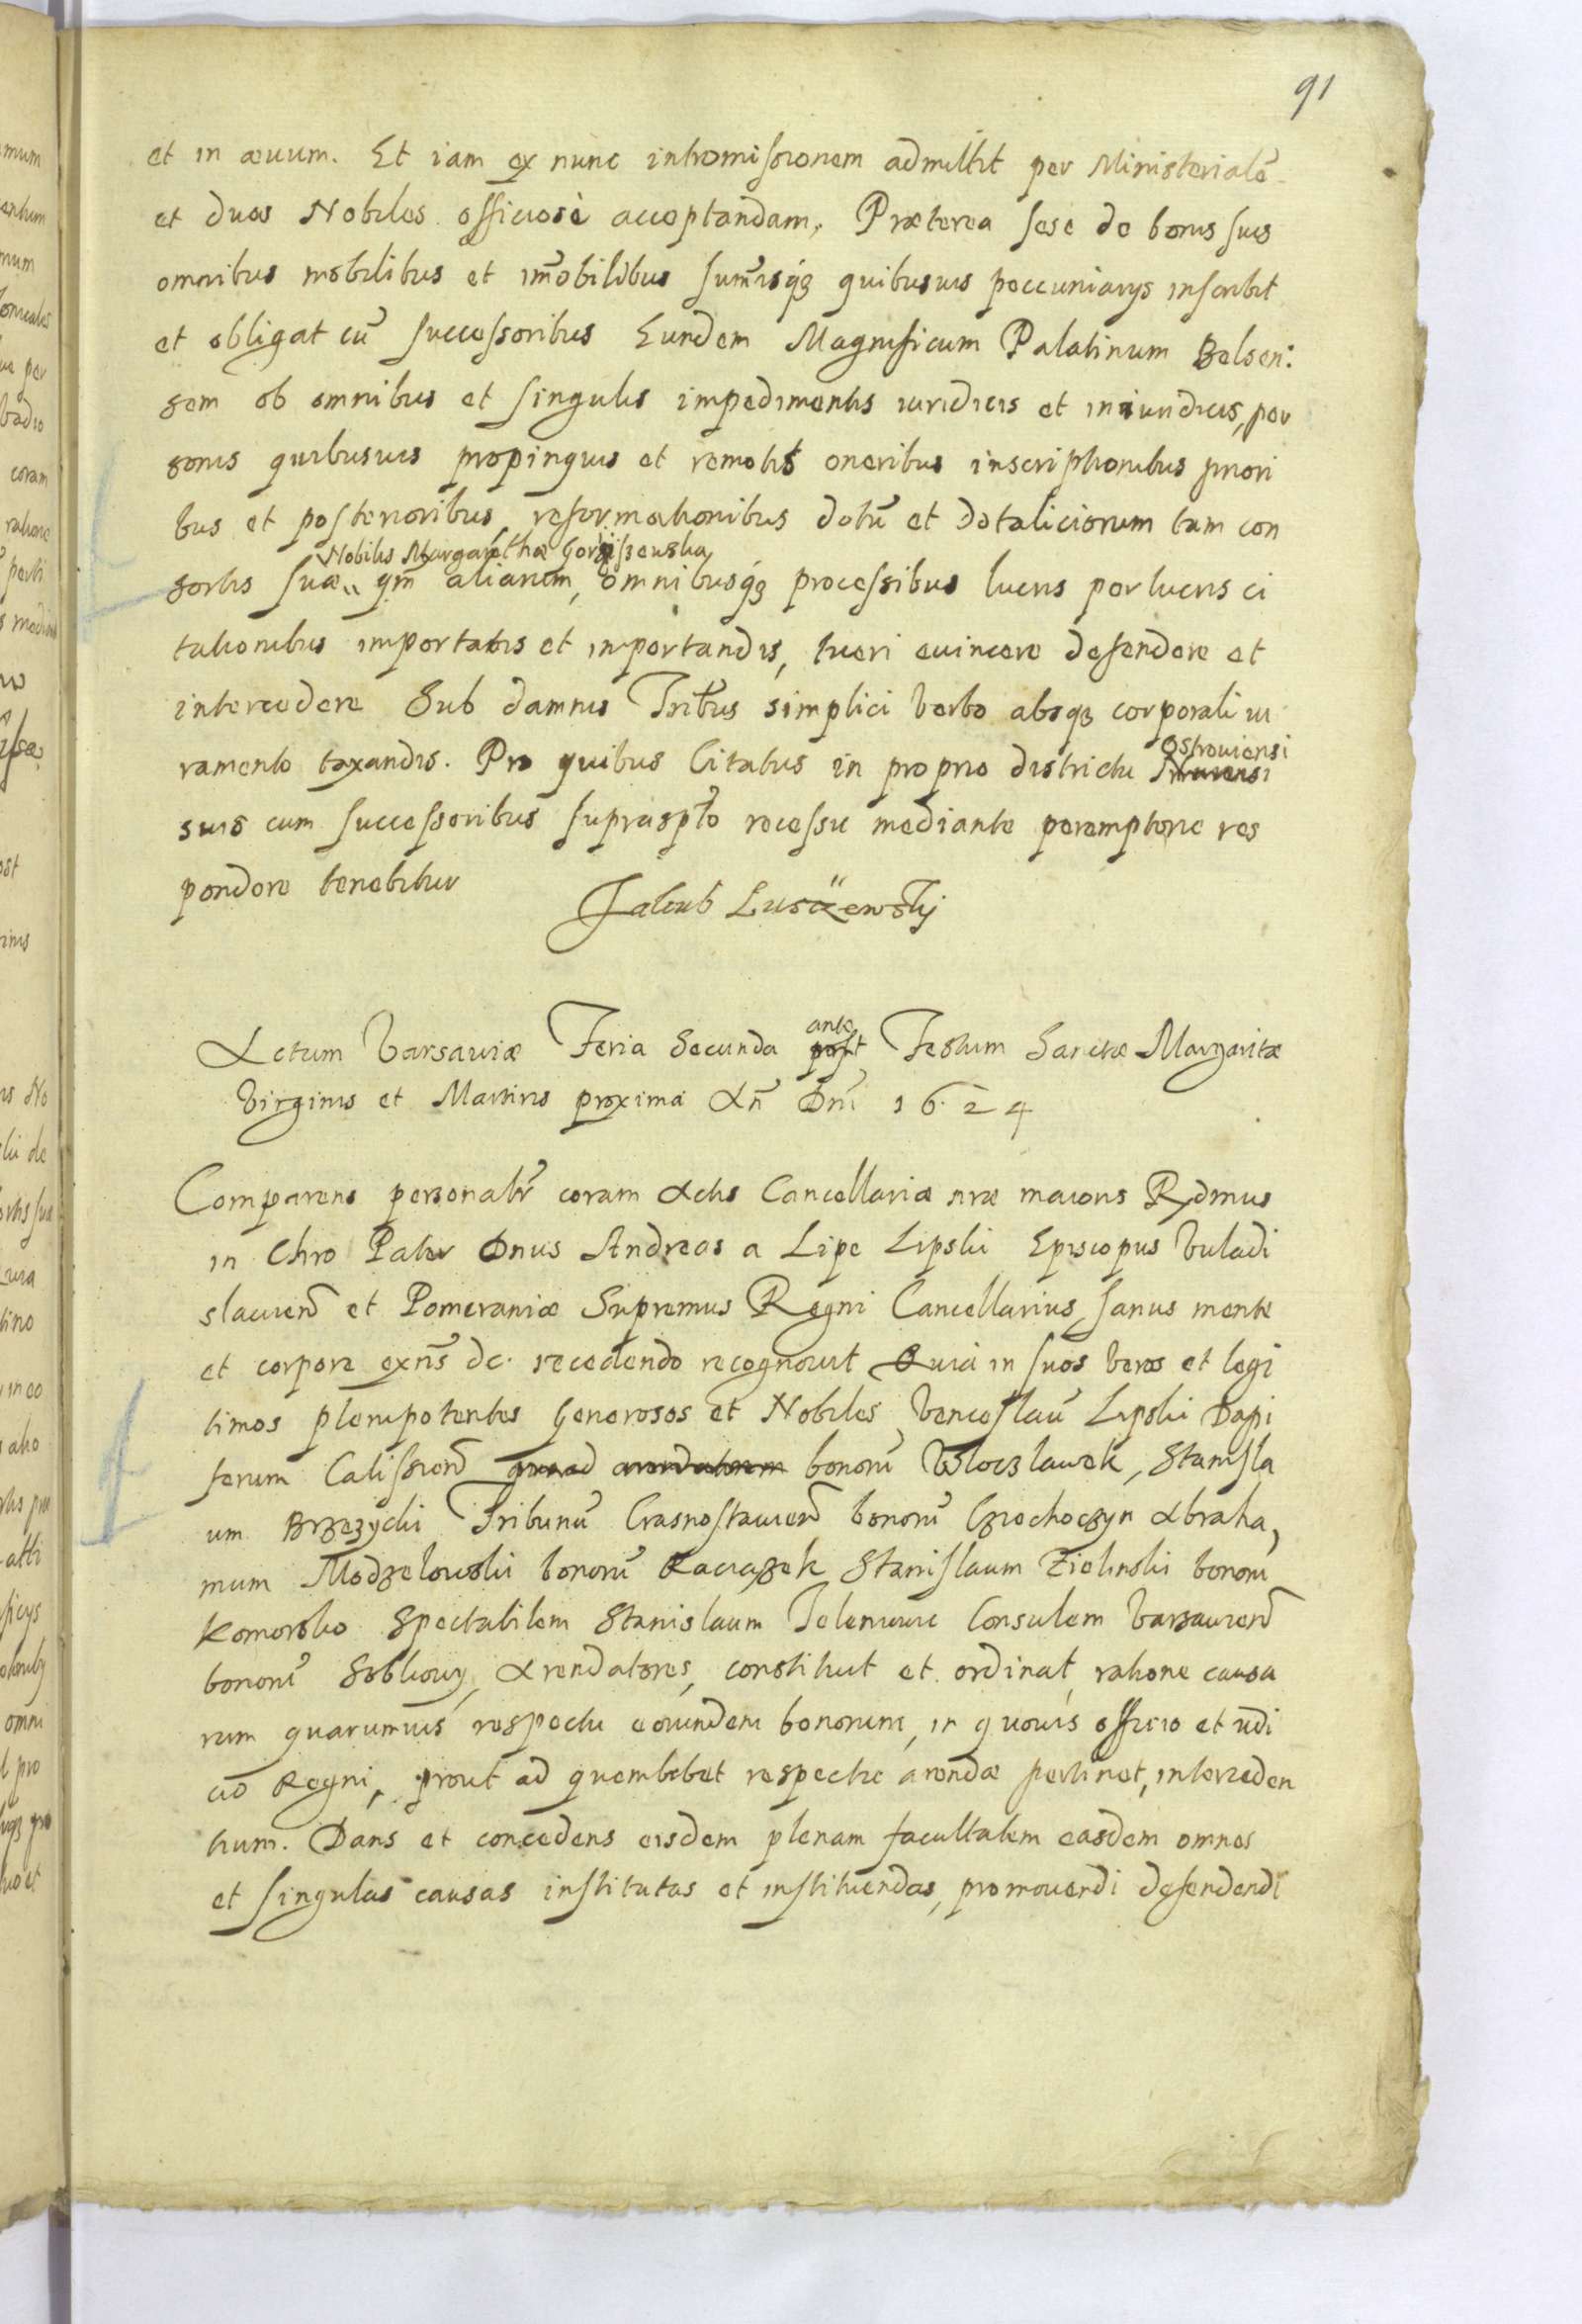 91
et in æuum. Et iam ex nunc intromissionem admittit per Ministerialē
et duos Nobiles officiosè acceptandam. Præterea sese de bonis suis
omnibus mobilibus et im̄obilibus sum̄isqȝ quibusuis peccuniarys inscribit
et obligat cū successoribus Eundem Magnificum Palatinum Belsen:
sem ob omnibus et singulis impedimentis iuridicis et iniuridicis, per
sonis quibusuis propinquis et remotis oneribus inscriptionibus priori
bus et posterioribus, reformationibus dotū et dotaliciorum tam con
Nobilis Margarethæ
sortis suæ qm̄ aliarum, omnibusqȝ processibus lucris perlucris ci
tationibus importatis et importandis, tueri euincere defendere et
intercedere Sub damnis Tribus simplici verbo absqȝ corporali iu
Ostrouiensi
ramento taxandis. Pro quibus Citatus in proprio districtu
suis cum successoribus supraspto recessu mediante peremptorie res
pondere tenebitur
Jakub Lusczewsky
Actum Varsauiæ Feria Secunda post Festum Sanctæ Margaritæ
ante
Virginis et Martiris proxima An̄ Dn̄i 1624
Comparens personalr̄ coram Actis Cancellariæ nræ maioris Rdmus
in Chro Pater Dnus Andreas a Lipe Lipski Episcopus Vuladi
slauien̄ et Pomeraniæ Supremus Regni Cancellarius, sanus mente
et corpore exn̄s dc. recedendo recognouit Quia in suos veros et legi
timos plenipotentes Generosos et Nobiles, Venceslaū Lipski Dapi
ferum Calissien̄ quoad arendatorem bonorū Wloczlawek, Stanisla
um Brzezycki Tribunū Crasnostauien̄ bonorū Czochoczyn Abraha,
mum Modzelowski bonorū Raciązek Stanislaum Zielinski bonorū
Komorsko Spectabilem Stanislaum Consulem Varsauien̄
bonorū Sobkowy, Arendatores, constituit et ordinat, ratione causa
rum quarumuis respectu eorundem bonorum, in quouis officio et iudi
cio Regni, prout ad quemlibet respectu arendæ pertinet, interceden
tium. Dans et concedens eisdem plenam facultatem easdem omnes
et singulas causas institutas et instituendas, promouendi defendendi